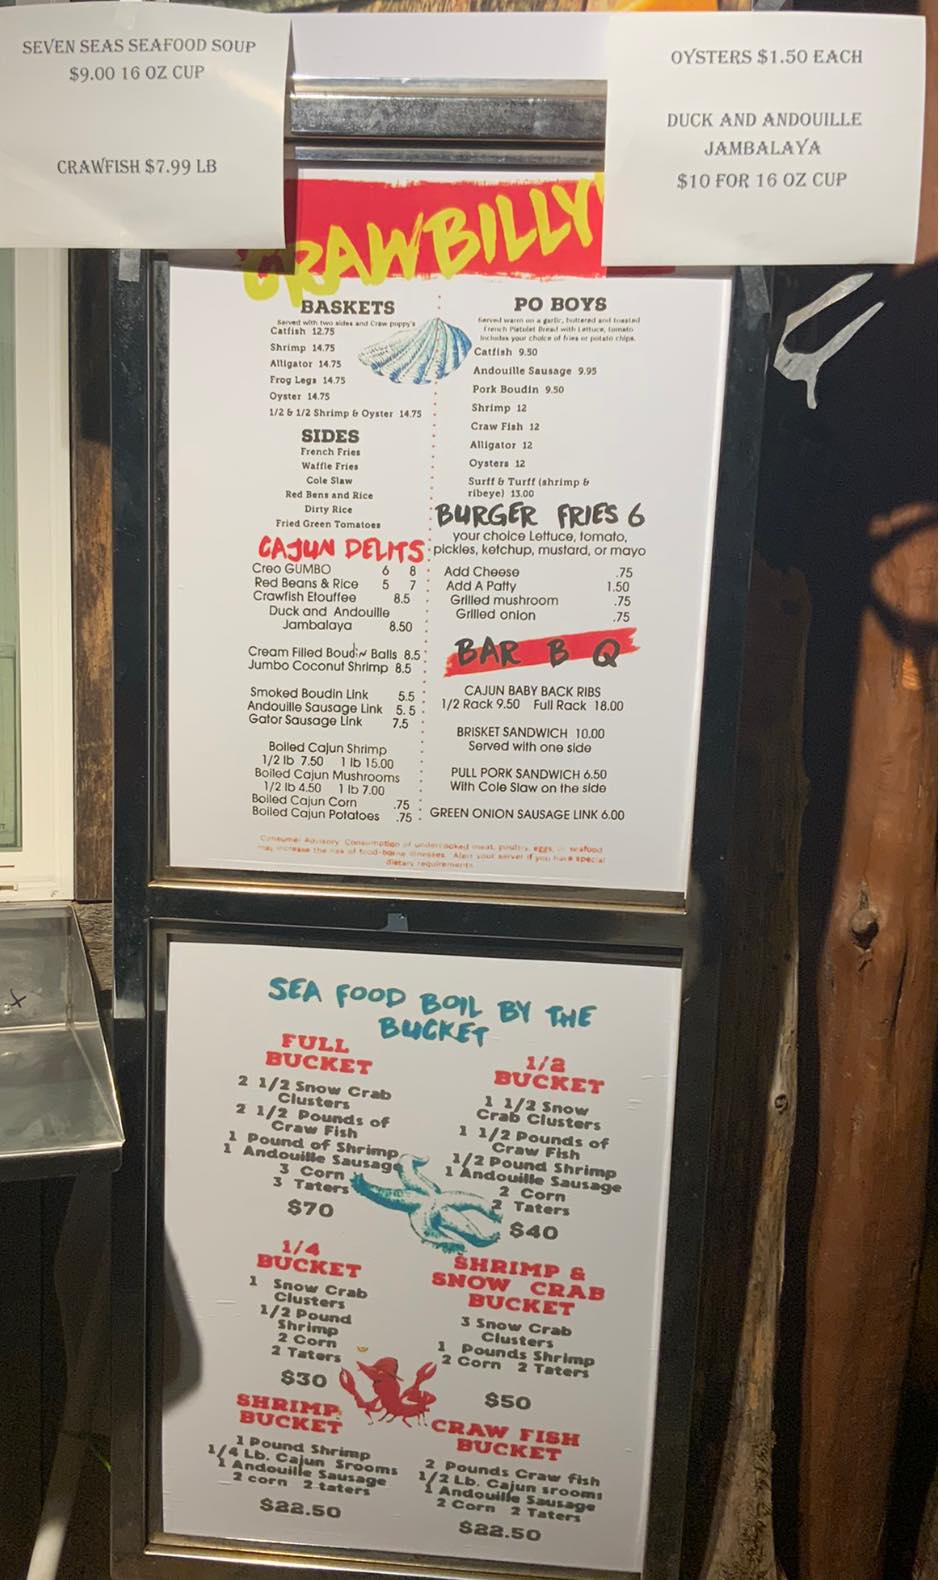 SEVEN SEAS SEAFOOD SOUP
$9.00 16 OZ CUP
CRAWFISH $7.99 LB
OYSTERS $1.50 EACH
DUCK AND ANDOUILLE
JAMBALAYA
$10 FOR 16 OZ CUP
CRAWBILLY'
BASKETS
Served with two sides and Craw puppy's
Catfish 12.75
Shrimp 14.75
Alligator 14.75
Frog Legs 14.75
Oyster 14.75
1/2 & 1/2 Shrimp & Oyster 14.75
SIDES
French Fries
Waffle Fries
Cole Slaw
Red Bens and Rice
Dirty Rice
Fried Green Tomatoes
CAJUN DELITS
Creo GUMBO 6 8
Red Beans & Rice 5 7
Crawfish Etouffee 8.5
Duck and Andouille
Jambalaya 8.50
Cream Filled Boudin Balls 8.5
Jumbo Coconut Shrimp 8.5
Smoked Boudin Link 5.5
Andouille Sausage Link 5.5
Gator Sausage Link 7.5
Boiled Cajun Shrimp
1/2 lb 7.50 1 lb 15.00
Boiled Cajun Mushrooms
1/2 lb 4.50 1 lb 7.00
Boiled Cajun Corn .75
Boiled Cajun Potatoes .75
PO BOYS
Served warm on a garlic, buttered and toasted
French Pistolet Bread with Lettuce, tomato
Includes your choice of fries or potato chips.
Catfish 9.50
Andouille Sausage 9.95
Pork Boudin 9.50
Shrimp 12
Craw Fish 12
Alligator 12
Oysters 12
Surff & Turff (shrimp &
ribeye) 13.00
BURGER FRIES 6
your choice Lettuce, tomato,
pickles, ketchup, mustard, or mayo
Add Cheese .75
Add A Patty 1.50
Grilled mushroom .75
Grilled onion .75
BAR B Q
CAJUN BABY BACK RIBS
1/2 Rack 9.50 Full Rack 18.00
BRISKET SANDWICH 10.00
Served with one side
PULL PORK SANDWICH 6.50
With Cole Slaw on the side
GREEN ONION SAUSAGE LINK 6.00
Consumer Advisory: Consumption of undercooked meat, poultry, eggs, or seafood
may increase the risk of food-borne illnesses. Alert your server if you have special
dietary requirements
SEA FOOD BOIL BY THE
BUCKET
FULL
BUCKET
2 1/2 Snow Crab
Clusters
2 1/2 Pounds of
Craw Fish
1 Pound of Shrimp
1 Andouille Sausage
3 Corn
3 Taters
$70
1/2
BUCKET
1 1/2 Snow
Crab Clusters
1 1/2 Pounds of
Craw Fish
1/2 Pound Shrimp
1 Andouille Sausage
2 Corn
2 Taters
$40
1/4
BUCKET
1 Snow Crab
Clusters
1/2 Pound
Shrimp
2 Corn
2 Taters
$30
SHRIMP &
SNOW CRAB
BUCKET
3 Snow Crab
Clusters
1 Pounds Shrimp
2 Corn 2 Taters
$50
SHRIMP
BUCKET
1 Pound Shrimp
1/4 Lb. Cajun Srooms
1 Andouille Sausage
2 corn 2 taters
$22.50
CRAW FISH
BUCKET
2 Pounds Craw fish
1/2 Lb. Cajun srooms
1 Andouille Sausage
2 Corn 2 Taters
$22.50